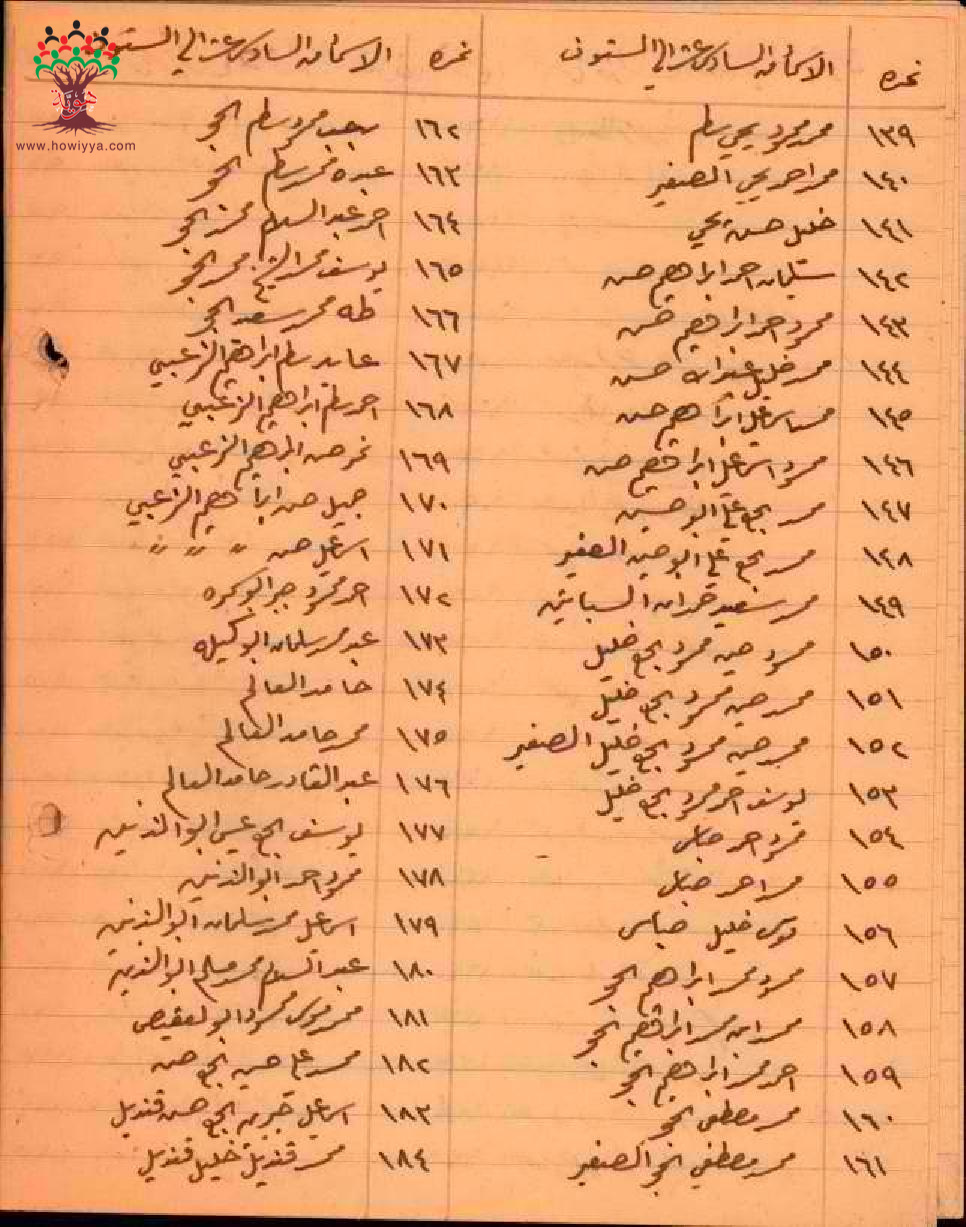 هوية
www.howiyya.com
نمره الاسماء من السادس عشر الي الستون
١٣٩ محمد محمود يحيى سالم
١٤٠ محمد احمد يحيى الصغير
١٤١ خليل حسن يحيى
١٤٢ سليمان احمد ابراهيم حسن
١٤٣ محمود احمد ابراهيم حسن
١٤٤ محمد خليل عبدالله حسن
١٤٥ محمد اسماعيل ابراهيم حسن
١٤٦ محمود اسماعيل ابراهيم حسن
١٤٧ محمد الحج علي ابو حسين
١٤٨ محمد الحج علي ابو حسين الصغير
١٤٩ محمد سعيد حمدان السباتين
١٥٠ محمود حسين محمود الحج خليل
١٥١ محمد حسين محمود الحج خليل
١٥٢ محمد حسين محمود الحج خليل الصغير
١٥٣ يوسف احمد محمود الحج خليل
١٥٤ محمود احمد
١٥٥ محمد احمد
١٥٦ موسى خليل
١٥٧ محمود محمد ابراهيم الحج
١٥٨ محمد امين محمد ابراهيم الحج
١٥٩ احمد محمد ابراهيم الحج
١٦٠ محمد مصطفى الحج
١٦١ محمد مصطفى الحج الصغير
نمره الاسماء من السادس عشر الي الستون
١٦٢ محمود سالم الحج
١٦٣ عبده محمد سالم الحج
١٦٤ احمد عبد السلام محمد الحج
١٦٥ يوسف محمد الشيخ محمد الحج
١٦٦ طه محمد سعيد الحج
١٦٧ عابد سالم ابراهيم الزعبي
١٦٨ احمد سالم ابراهيم الزعبي
١٦٩ نمر حسن ابراهيم الزعبي
١٧٠ جميل حسن ابراهيم الزعبي
١٧١ اسماعيل حسن " " "
١٧٢ احمد محمود جبر
١٧٣ عبد محمد سلمان ابو كيله
١٧٤ حامد العالم
١٧٥ محمد حامد العالم
١٧٦ عبد القادر حامد العالم
١٧٧ يوسف الحج عيسى ابو الذنين
١٧٨ محمود احمد ابو الذنين
١٧٩ اسماعيل محمد سلمان ابو الذنين
١٨٠ عبد السلام محمد مسلم ابو الذنين
١٨١ محمد موسى محمود ابو لعفيص
١٨٢ محمد علي حسين الحج حسن
١٨٣ اسماعيل جبرين الحج حسن قنديل
١٨٤ محمد قنديل خليل قنديل